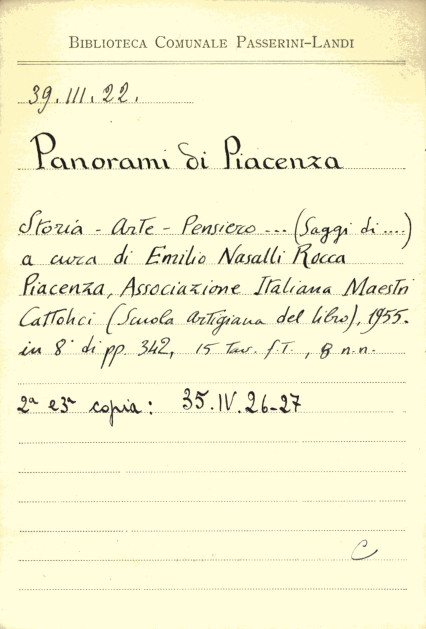 BIBLIOTECA COMUNALE PASSERINI-LANDI
39.III.22.
Panorami di Piacenza
Storia - Arte - Pensiero ... (Saggi di ....)
a cura di Emilio Nasalli Rocca
Piacenza, Associazione Italiana Maestri
Cattolici (Scuola artigiana del libro), 1955.
in 8° di pp. 342, 15 Tav. f.T., 8 n.n.
2ª e 3ª copia: 35.IV.26-27
C